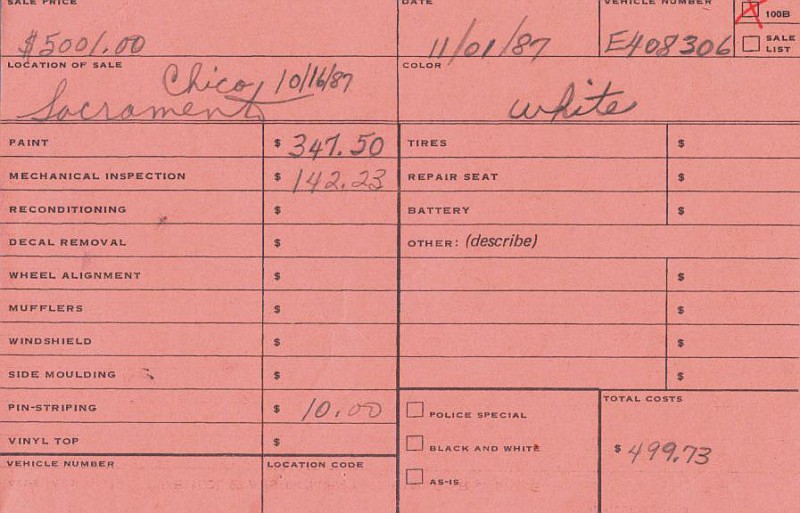 SALE PRICE DATE VEHICLE NUMBER
$5001.00 11/01/87 E408306
100B
SALE LIST
LOCATION OF SALE COLOR
Chico, 10/16/87
Sacramento white
PAINT $ 347.50 TIRES $
MECHANICAL INSPECTION $ 142.23 REPAIR SEAT $
RECONDITIONING $ BATTERY $
DECAL REMOVAL $ OTHER: (describe)
WHEEL ALIGNMENT $ $
MUFFLERS $ $
WINDSHIELD $ $
SIDE MOULDING $ $
PIN-STRIPING $ 10.00 POLICE SPECIAL TOTAL COSTS
VINYL TOP $ BLACK AND WHITE $ 499.73
VEHICLE NUMBER LOCATION CODE AS-IS